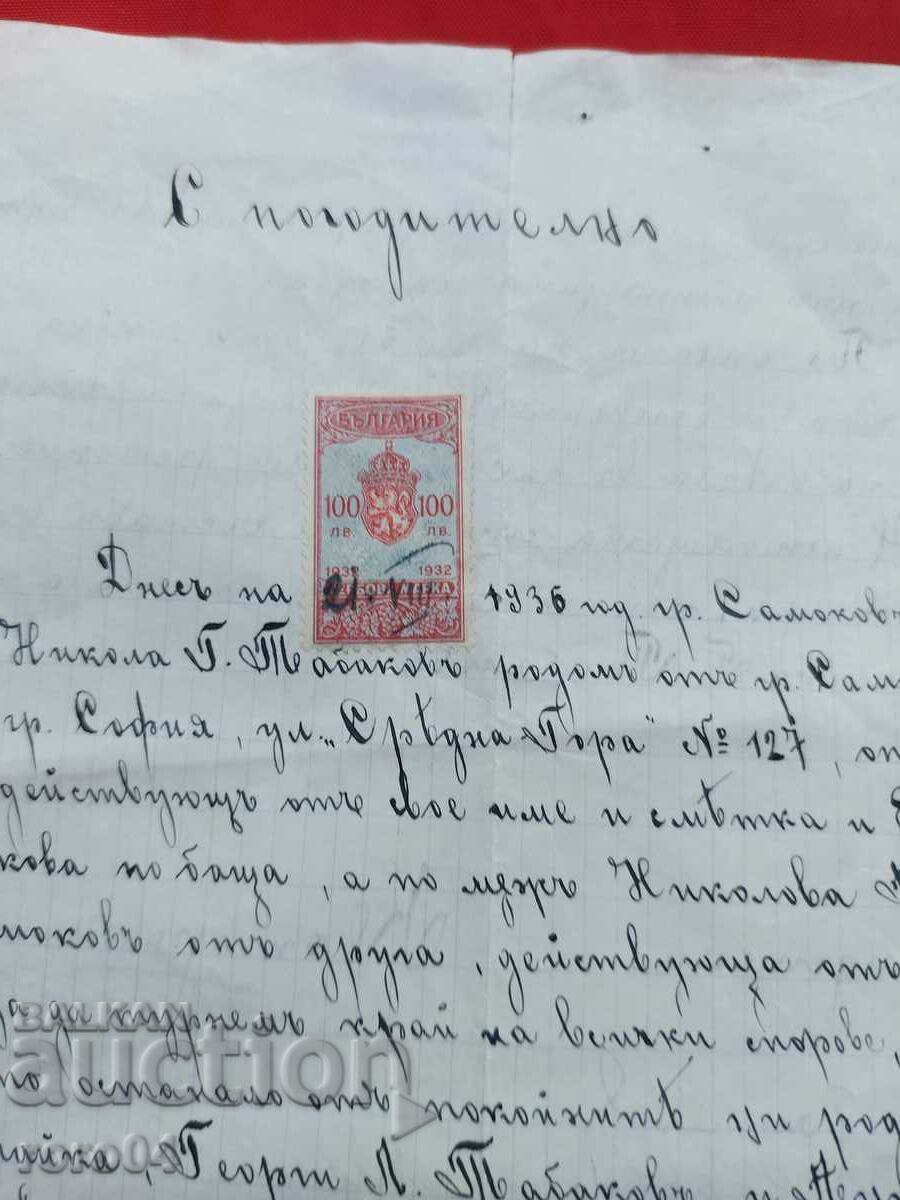 Спогодително
БЪЛГАРИЯ
100 100
ЛВ. ЛВ.
1932 1932
Днесъ на 21.VIII 1936 год. гр. Самоковъ
Никола Г. Табаковъ родомъ отъ гр. Сам
гр. София, ул. „Срѣдна Гора" № 127, от
действующъ отъ свое име и смѣтка и
кова по баща, а по мѫжъ Николова
моковъ отъ друга, действующа отъ
за да туремъ край на всички спорове,
то останало отъ покойнитѣ ни род
майка, Георги Л. Табаковъ
BALKAN
auction